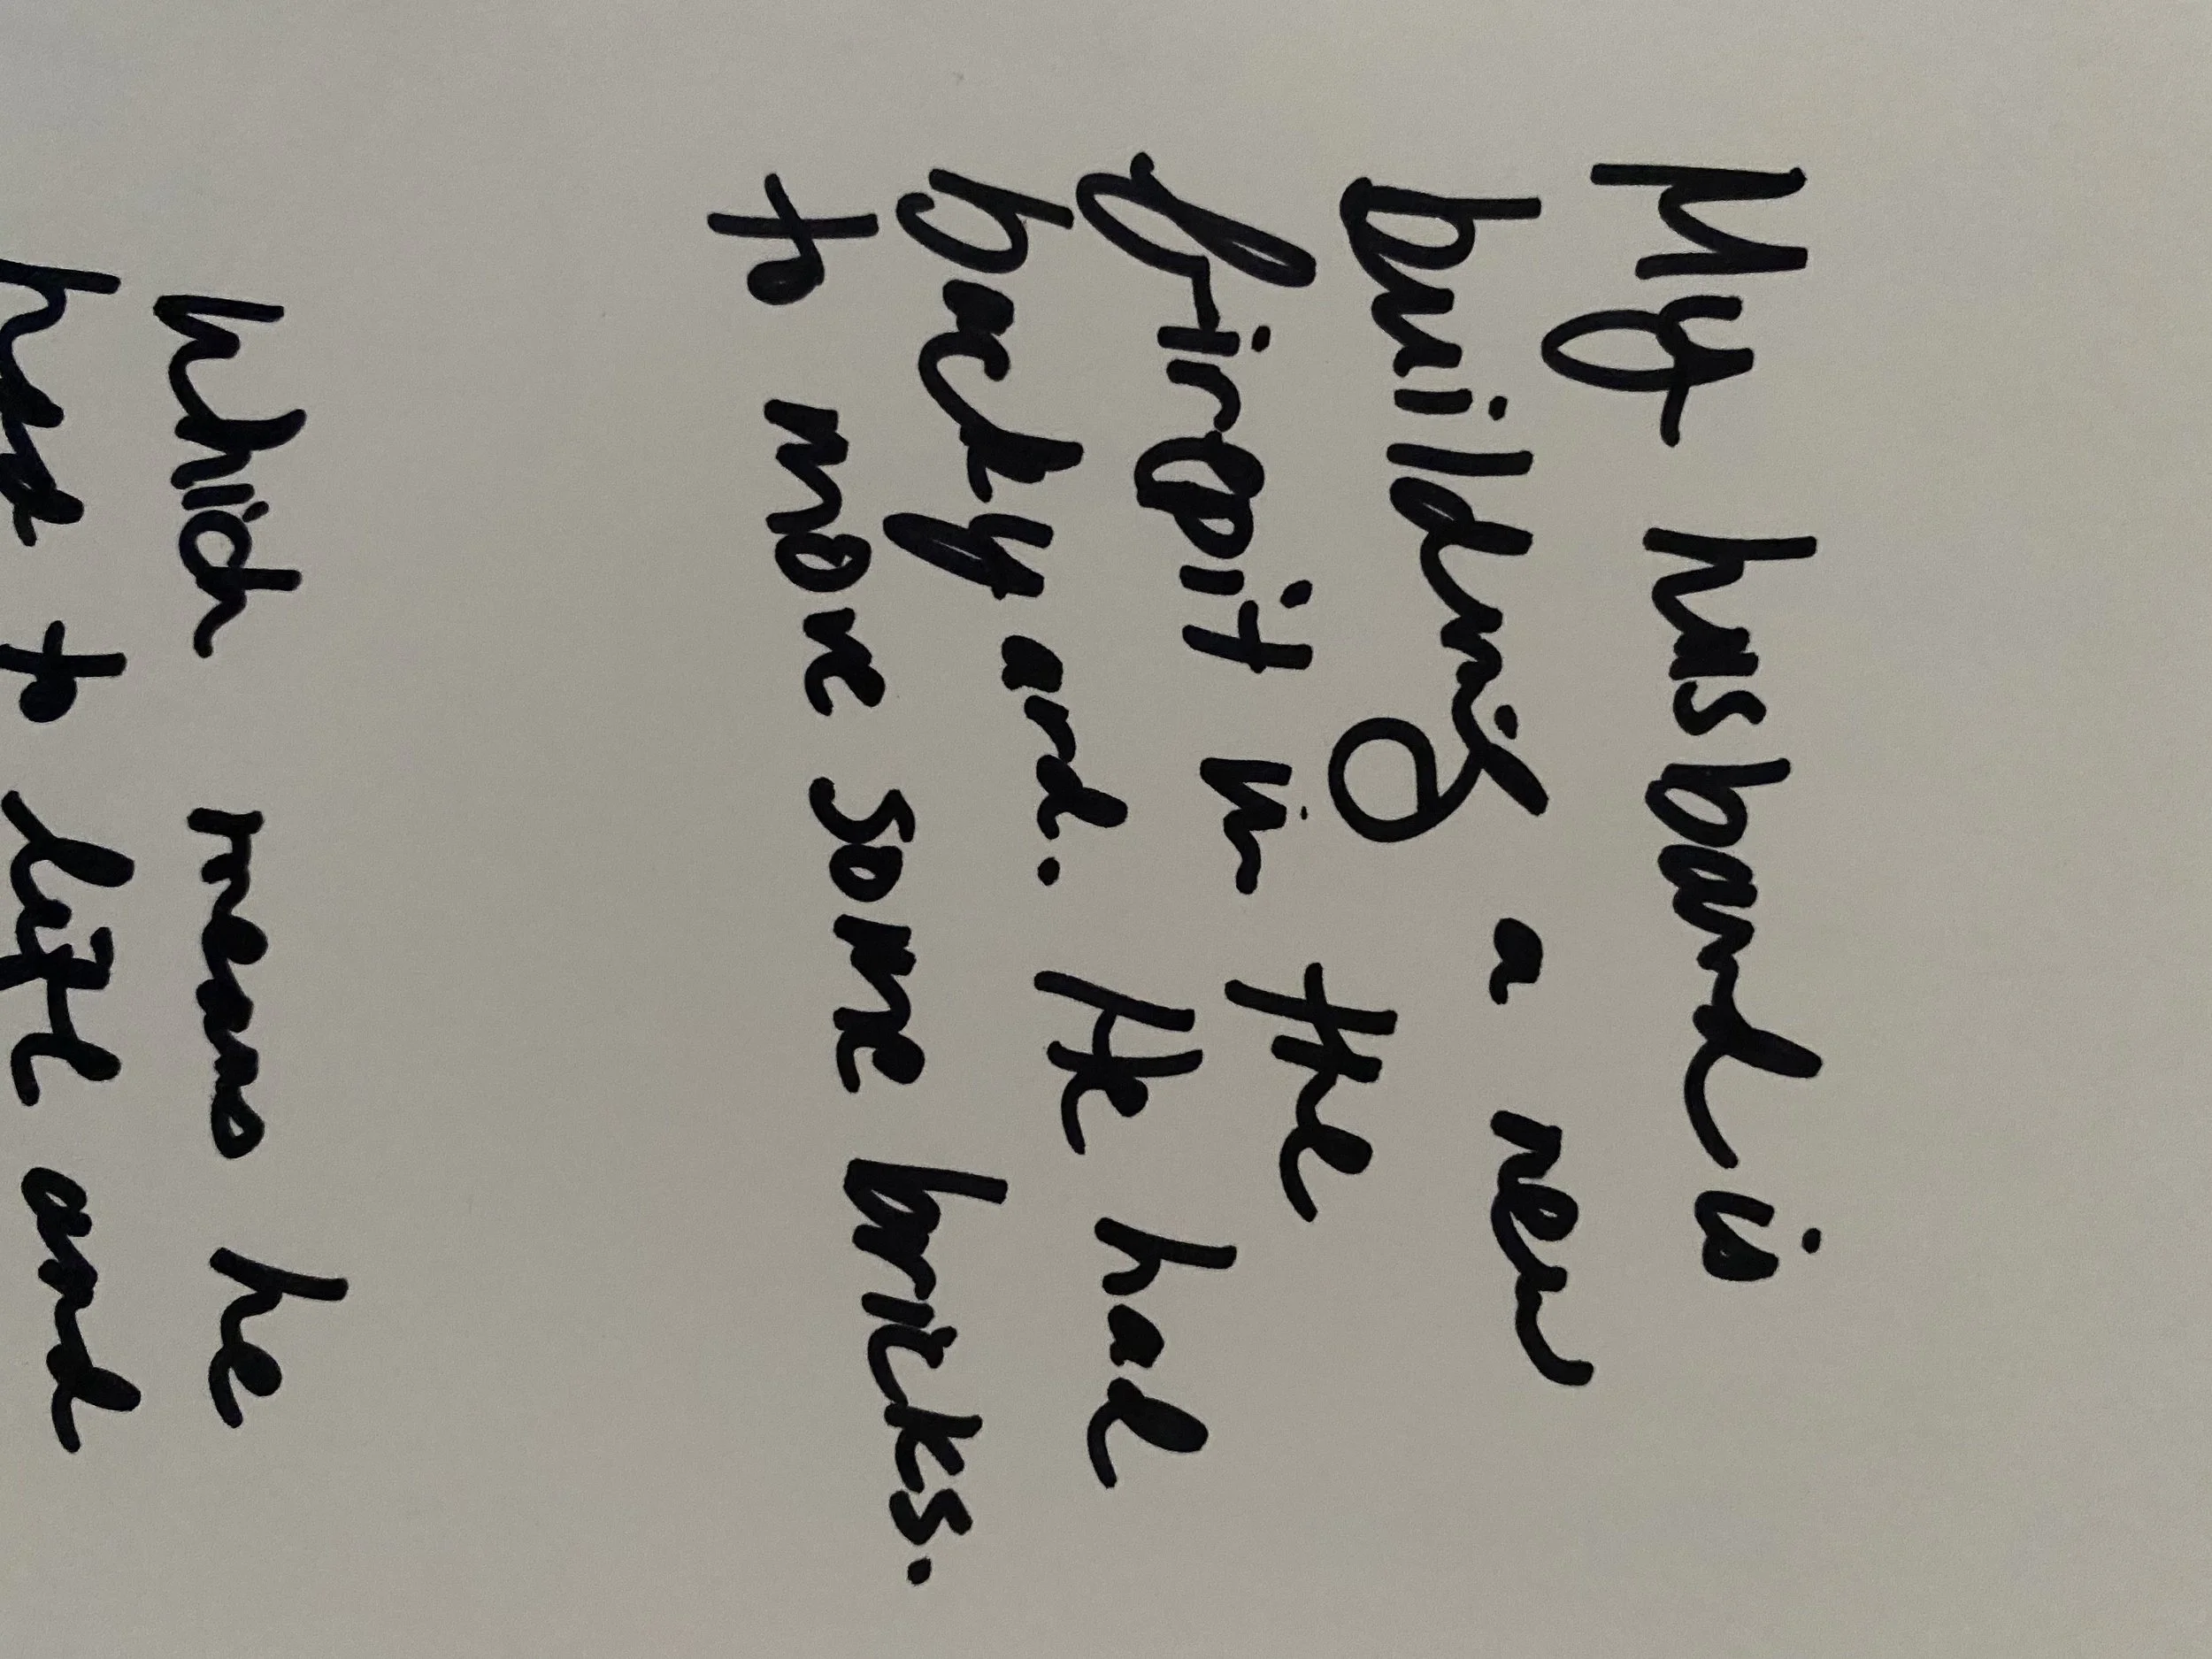 My husband is
building a new
firepit in the
backyard. He had
to move some bricks.
Which means he
had to lift and